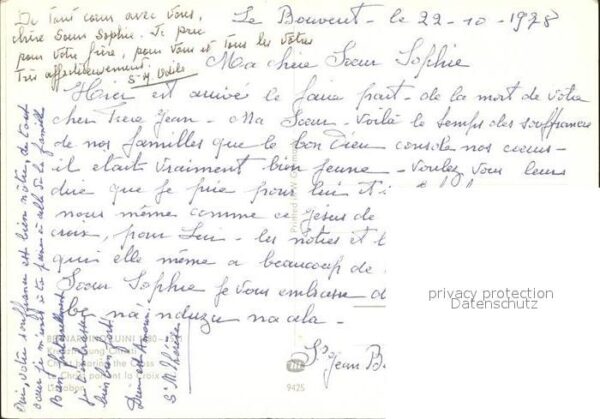 De tout cœur avec vous,
chère Sœur Sophie. Je prie
pour votre frère, pour vous et tous les vôtres
Très affectueusement.
Sr M. Odile
Le Bouvent - le 22-10-1978
Ma chère Sœur Sophie
Hier est arrivé le faire part - de la mort de votre
cher Frère Jean - Ma Sœur - Voilà le temps des souffrances
de nos familles que le bon Dieu console nos cœurs -
il était vraiment bien jeune - Voulez vous leurs
dire que je prie pour lui et
nous même comme ce Jésus de
croix, pour Lui - les nôtres et
qui elle même a beaucoup de
Sœur Sophie je vous embrasse
na nduzu na
Sr Jean
Oui, votre souffrance est bien nôtre de tout
cœur je m'unis à ta peine à celle de la famille
Bien fraternellement
je t'embrasse
bien fort.
Dieu est Amour!
Sr M. Thérèse
BERNARDINO LUINI 1480-
Christ bearing the Cross
Le Christ portant la Croix
9425
Printed in
privacy protection
Datenschutz